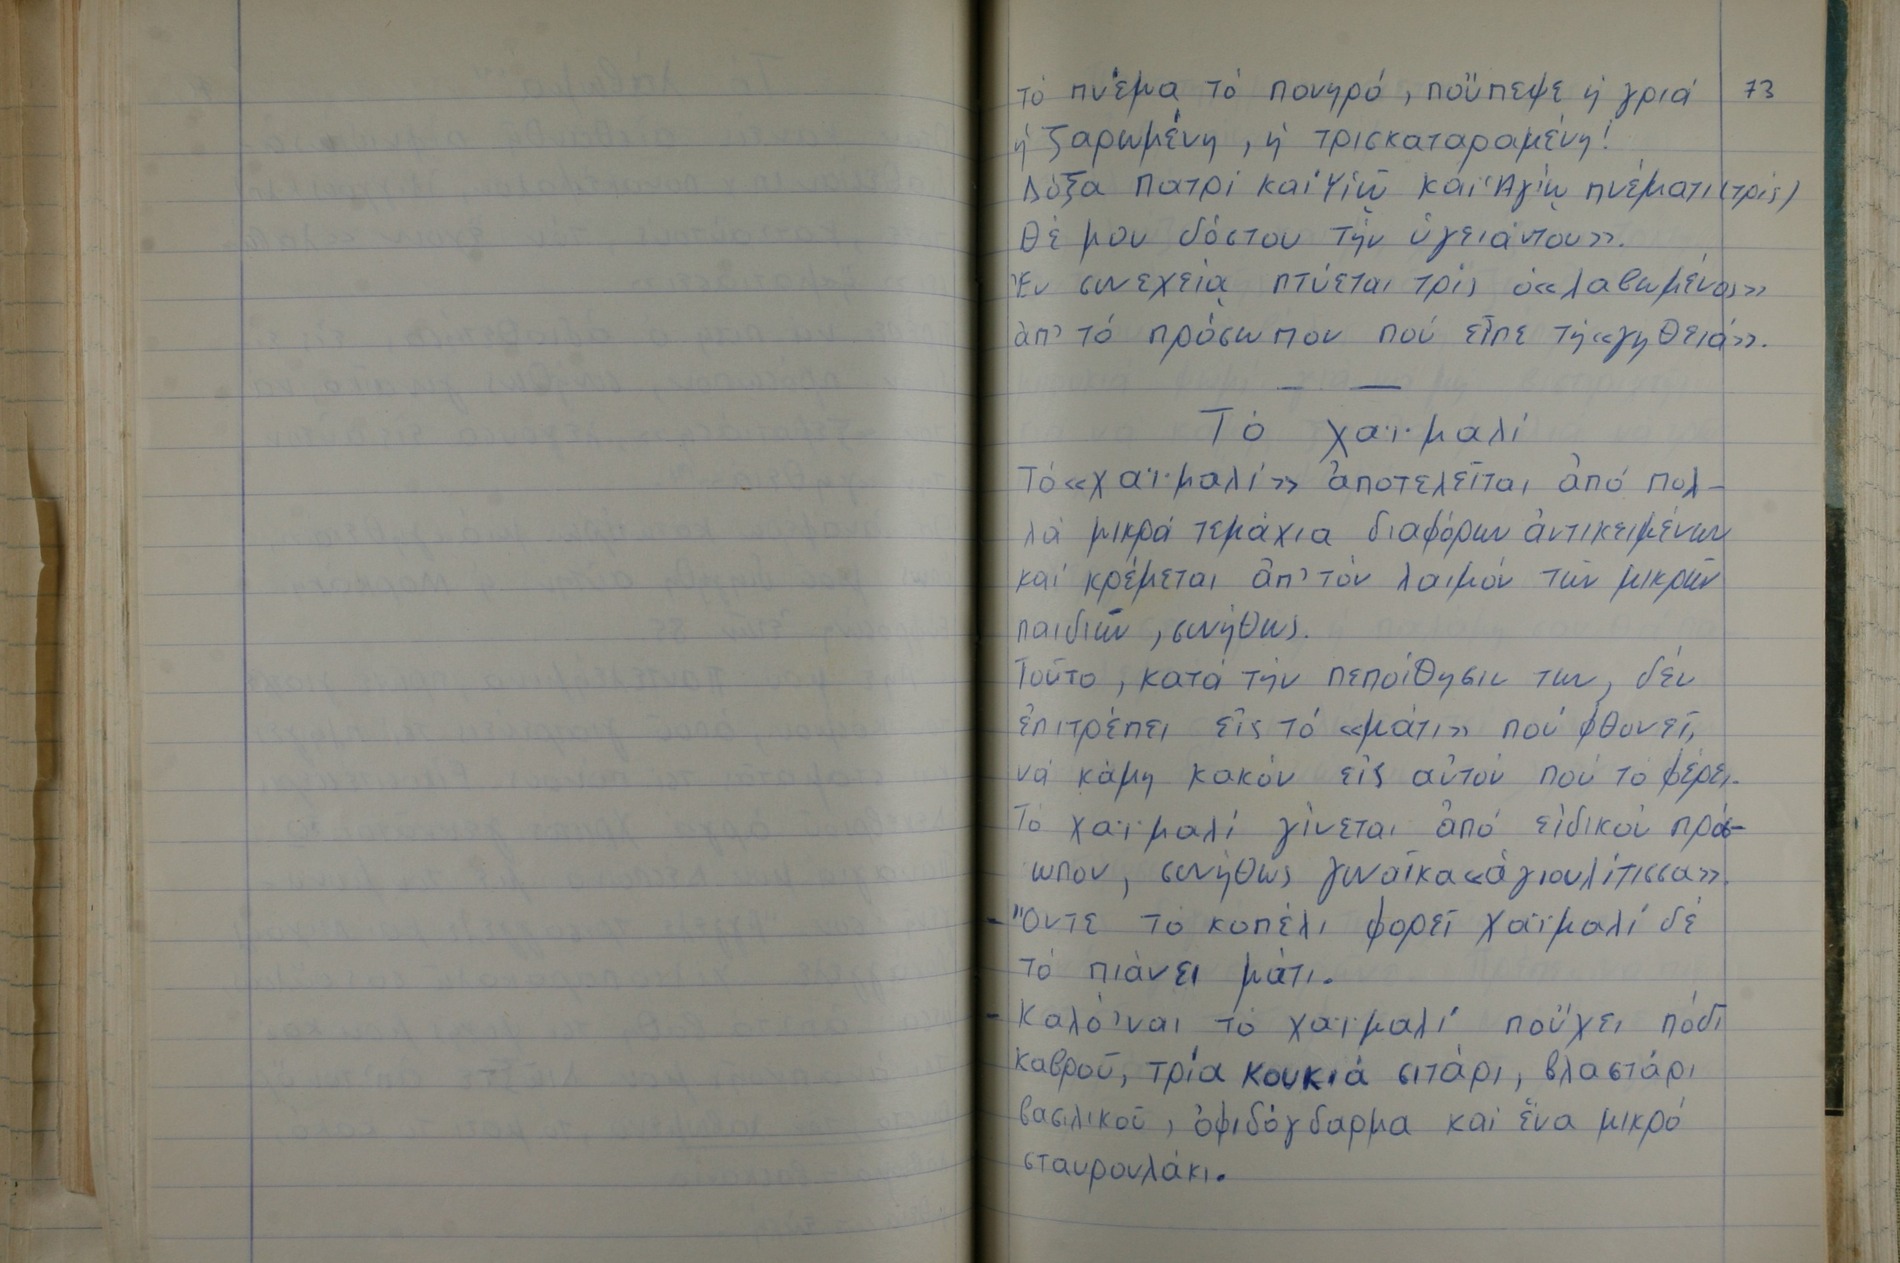 τό πνέμα τό πονηρό, ποὔπεψε ἡ γριά 73
ἡ ζαρωμένη, ἡ τρισκαταραμένη!
Δόξα Πατρί καί Ὑἱῷ καί Ἁγίῳ πνέματι (τρίς)
Θέ μου δόστου τὴν ὑγειάντου».
Ἐν συνεχείᾳ πτύεται τρίς ὁ «λαβωμένος»
ἀπ' τό πρόσωπον πού εἶπε τή «γηθειά».
Τό χαϊμαλί
Τό «χαϊμαλί» ἀποτελεῖται ἀπό πολ-
λά μικρά τεμάχια διαφόρων ἀντικειμένων
καί κρέμεται ἀπ' τόν λαιμόν τῶν μικρῶν
παιδιῶν, συνήθως.
Τοῦτο, κατά τήν πεποίθησιν των, δέν
ἐπιτρέπει εἰς τό «μάτι» πού φθονεῖ,
νά κάμῃ κακόν εἰς αὐτόν πού τό φέρει.
Τό χαϊμαλί γίνεται ἀπό εἰδικόν πρόσ-
ωπον, συνήθως γυναῖκα «ἁγιουλίτισσα».
- "Οντε τό κοπέλι φορεῖ χαϊμαλί δέ
τό πιάνει μάτι.
- Καλό 'ναι τό χαϊμαλί ποὔχει πόδι
καβροῦ, τρία κουκιά σιτάρι, βλαστάρι
βασιλικοῦ, ὀφιδόγδαρμα καί ἕνα μικρό
σταυρουλάκι.